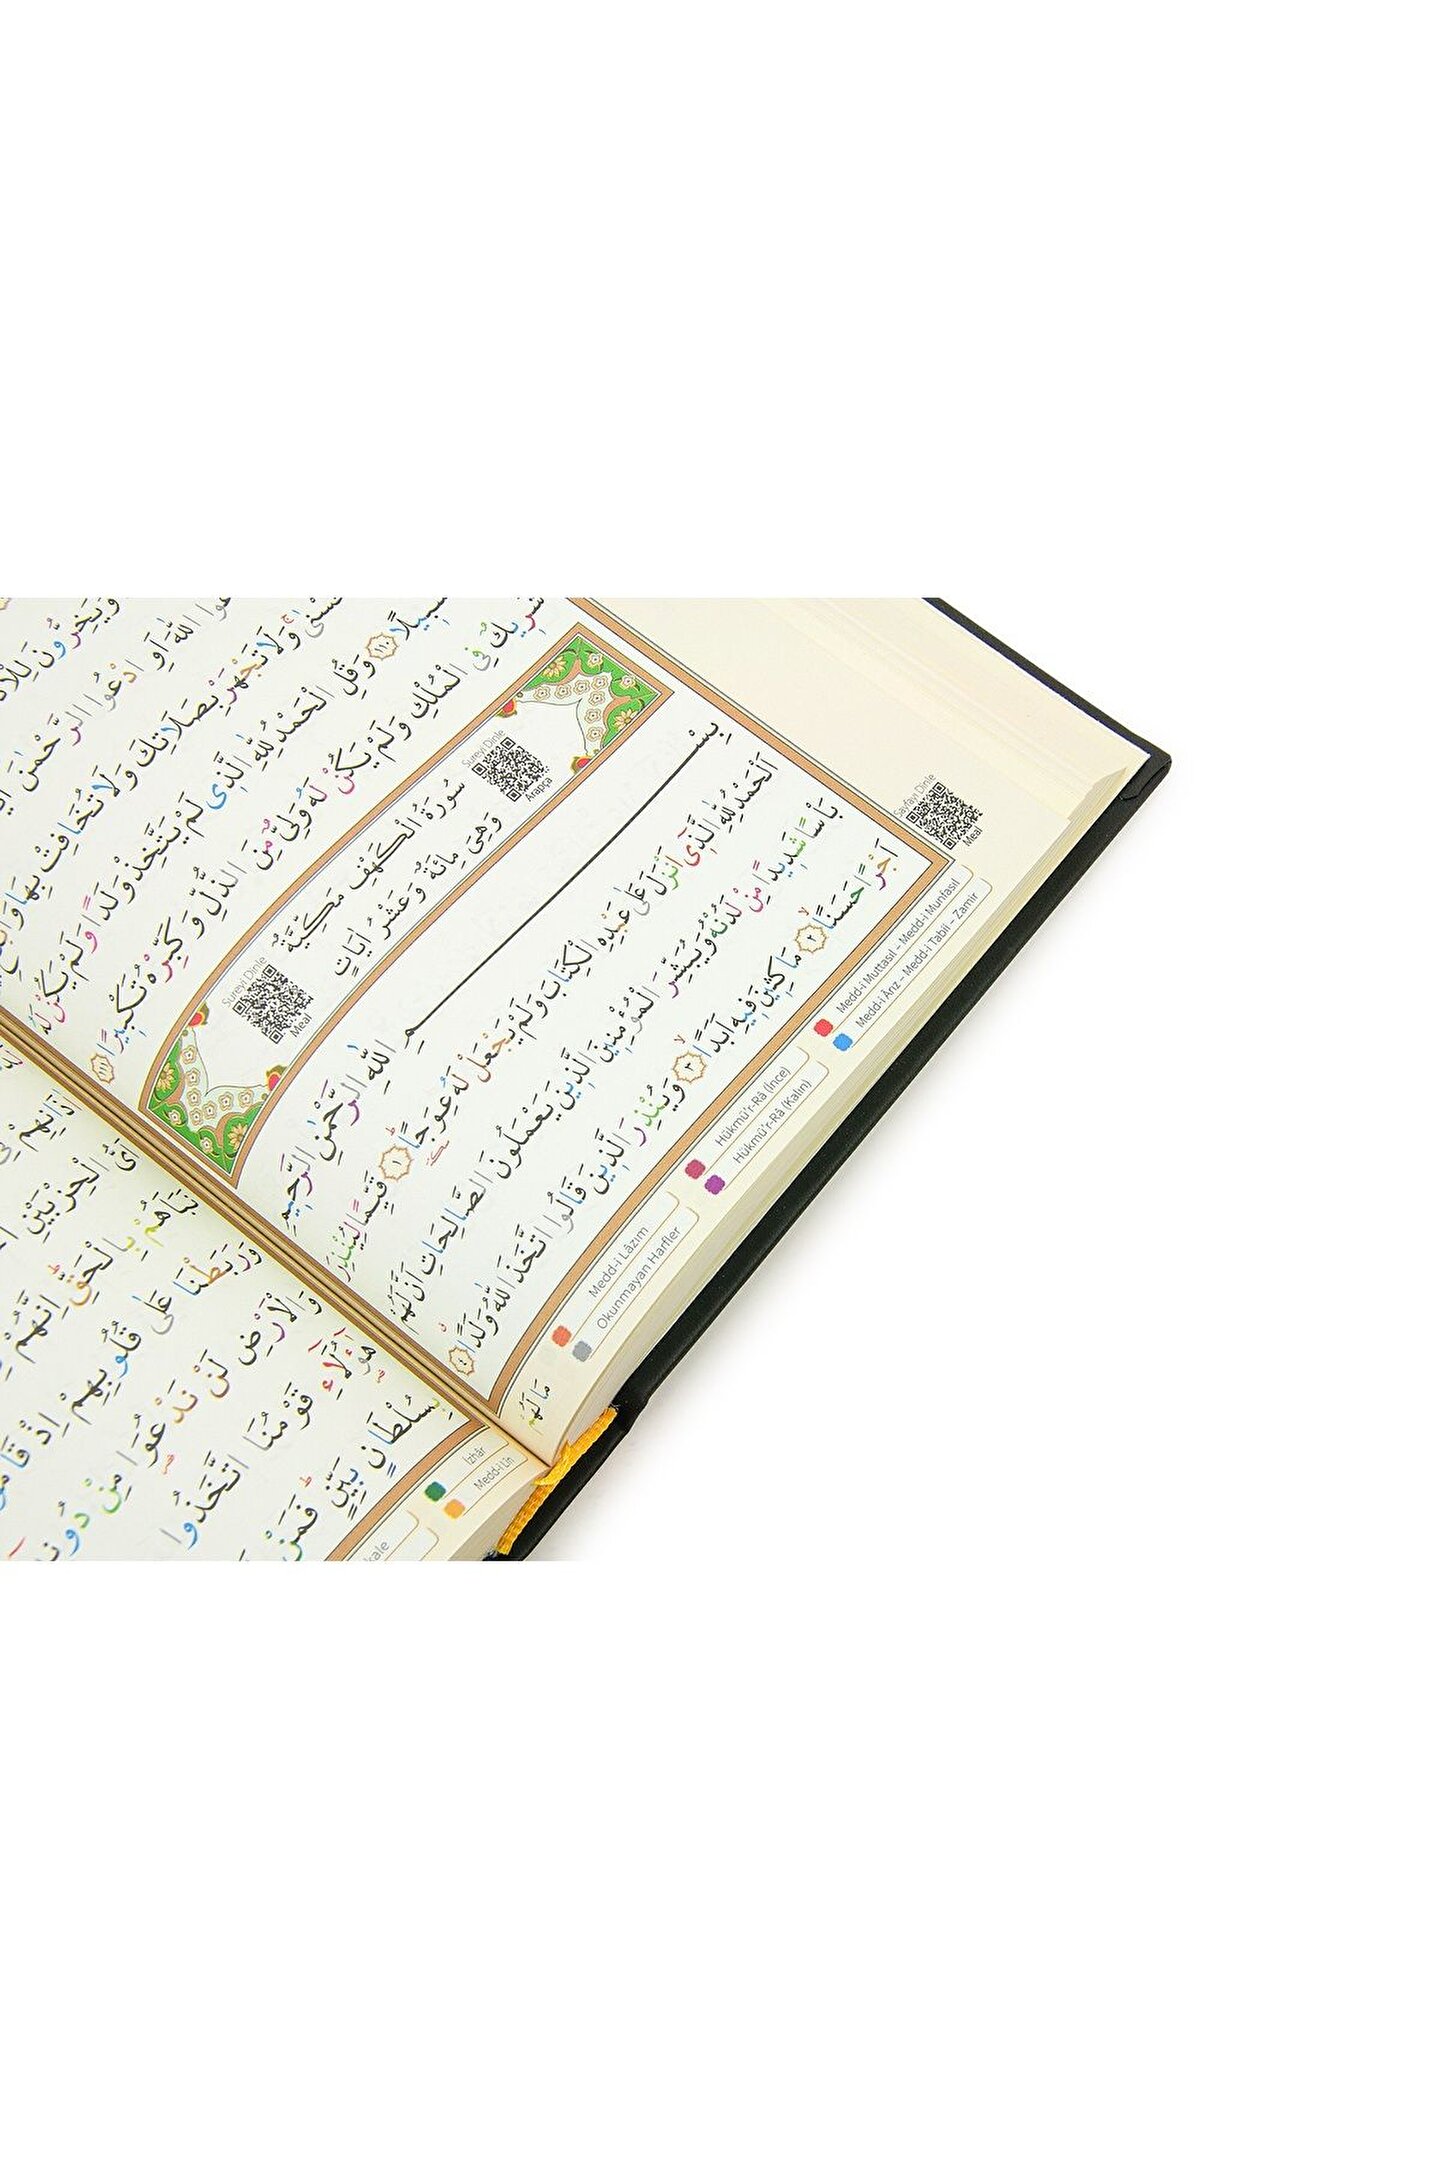 وَيَخِرُّونَ
اللّٰهَ اَوِ ادْعُوا الرَّحْمٰنَ
وَلَا تَجْهَرْ بِصَلَاتِكَ وَلَا تُخَافِتْ بِهَا
سَبِيلًا ﴿١١٠﴾ وَقُلِ الْحَمْدُ لِلّٰهِ الَّذِى لَمْ يَتَّخِذْ وَلَدًا وَلَمْ يَكُنْ لَهُ
شَرِيكٌ فِى الْمُلْكِ وَلَمْ يَكُنْ لَهُ وَلِىٌّ مِنَ الذُّلِّ وَكَبِّرْهُ تَكْبِيرًا ﴿١١١﴾
Sureyi Dinle
Arapça
سُورَةُ الْكَهْفِ مَكِّيَّةٌ
وَهِىَ مِائَةٌ وَعَشْرُ اٰيَاتٍ
Sureyi Dinle
Meal
بِسْمِ اللّٰهِ الرَّحْمٰنِ الرَّحِيمِ
اَلْحَمْدُ لِلّٰهِ الَّذِى اَنْزَلَ عَلٰى عَبْدِهِ الْكِتَابَ وَلَمْ يَجْعَلْ لَهُ عِوَجًا ﴿١﴾ قَيِّمًا لِيُنْذِرَ
بَأْسًا شَدِيدًا مِنْ لَدُنْهُ وَيُبَشِّرَ الْمُؤْمِنِينَ الَّذِينَ يَعْمَلُونَ الصَّالِحَاتِ اَنَّ لَهُمْ
اَجْرًا حَسَنًا ﴿٢﴾ مَاكِثِينَ فِيهِ اَبَدًا ﴿٣﴾ وَيُنْذِرَ الَّذِينَ قَالُوا اتَّخَذَ اللّٰهُ وَلَدًا ﴿٤﴾
مَا لَهُمْ
Sayfayı Dinle
Meal
Medd-i Muttasıl – Medd-i Munfasıl
Medd-i Ârız – Medd-i Tabiî – Zamir
Hükmü'r-Râ (İnce)
Hükmü'r-Râ (Kalın)
Medd-i Lâzım
Okunmayan Harfler
اَىُّ الْحِزْبَيْنِ
نَبَاَهُمْ بِالْحَقِّ اِنَّهُمْ
وَرَبَطْنَا عَلٰى قُلُوبِهِمْ اِذْ قَامُوا
وَالْاَرْضِ لَنْ نَدْعُوَا مِنْ دُونِهِ
هٰٓؤُلَاءِ قَوْمُنَا اتَّخَذُوا
بِسُلْطَانٍ بَيِّنٍ فَمَنْ
İzhâr
Medd-i Lîn